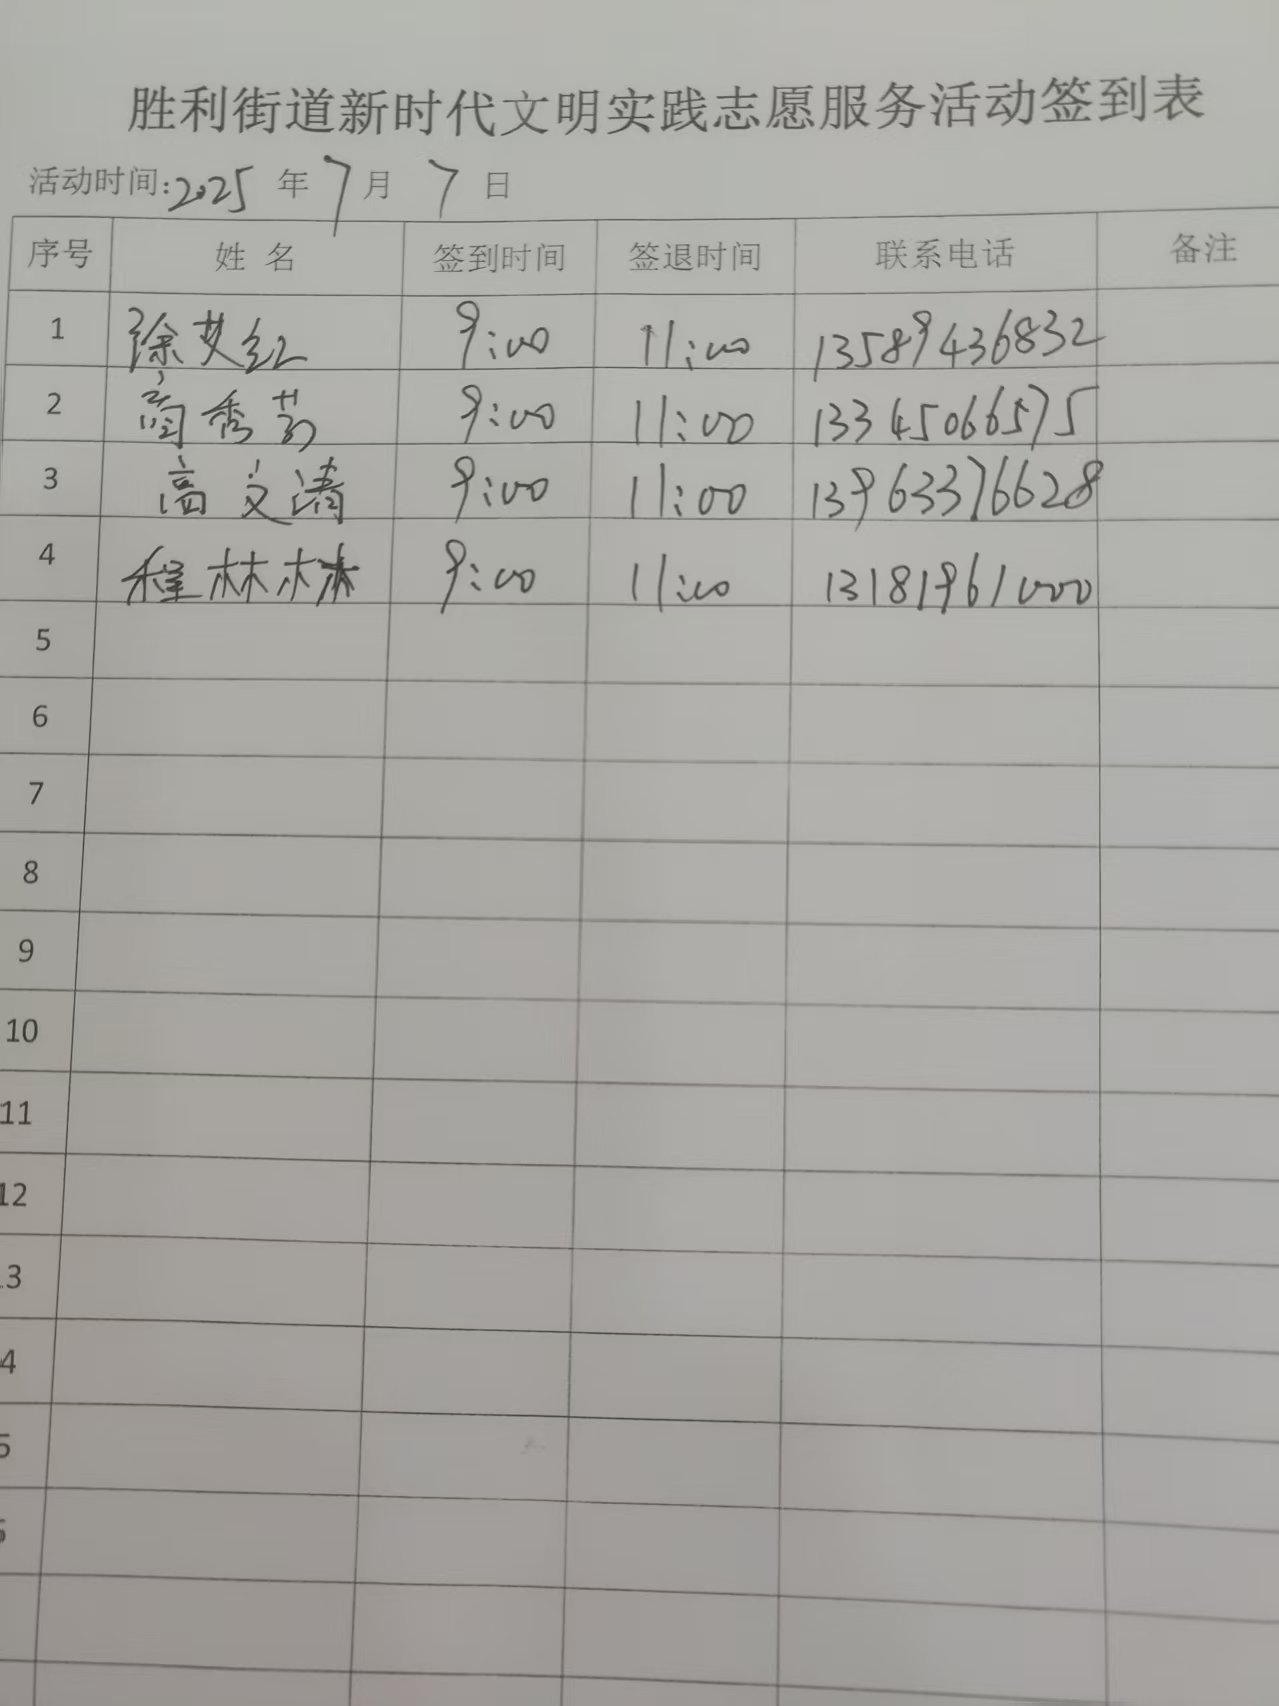 胜利街道新时代文明实践志愿服务活动签到表
活动时间:2025 年 7 月 7 日
序号 姓 名 签到时间 签退时间 联系电话 备注
1 徐艾红 9:00 11:00 13589436832
2 商秀芬 9:00 11:00 13345066575
3 高文涛 9:00 11:00 13963376628
4 程林林 9:00 11:00 13181961000
5
6
7
8
9
10
11
12